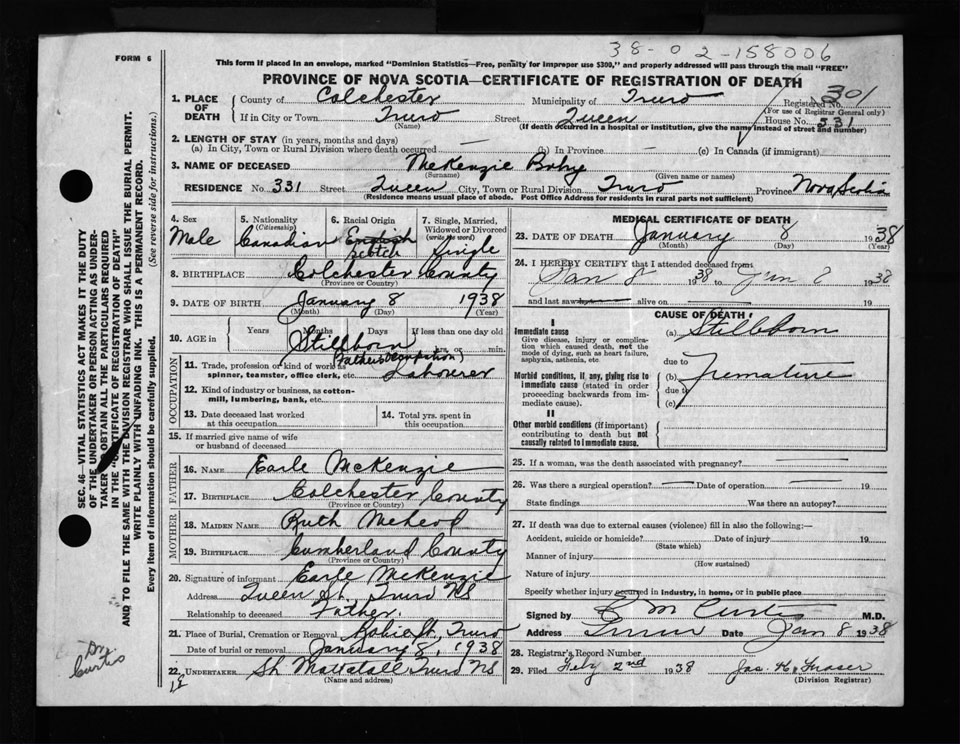 38-02-158006
FORM 6
This form if placed in an envelope, marked "Dominion Statistics—Free, penalty for improper use $300," and properly addressed will pass through the mail "FREE"
PROVINCE OF NOVA SCOTIA—CERTIFICATE OF REGISTRATION OF DEATH
1. PLACE OF DEATH County of Colchester Municipality of Truro Registered No. 301
(For use of Registrar General only)
If in City or Town Truro Street Queen House No. 331
(Name) (If death occurred in a hospital or institution, give the name instead of street and number)
2. LENGTH OF STAY (in years, months and days)
(a) In City, Town or Rural Division where death occurred — (b) In Province — (c) In Canada (if immigrant)
3. NAME OF DECEASED McKenzie Baby
(Surname) (Given name or names)
RESIDENCE No. 331 Street Queen City, Town or Rural Division Truro Province Nova Scotia
(Residence means usual place of abode. Post Office Address for residents in rural parts not sufficient)
4. Sex 5. Nationality (Citizenship) 6. Racial Origin 7. Single, Married, Widowed or Divorced (write the word)
Male Canadian English Scotch Single
8. BIRTHPLACE Colchester County
(Province or Country)
9. DATE OF BIRTH January 8 1938
(Month) (Day) (Year)
10. AGE in Years Months Days If less than one day old
Stillborn hrs. or min.
(Fathers Occupation)
11. Trade, profession or kind of work as spinner, teamster, office clerk, etc. Labourer
OCCUPATION
12. Kind of industry or business, as cotton-mill, lumbering, bank, etc.
13. Date deceased last worked at this occupation
14. Total yrs. spent in this occupation
15. If married give name of wife or husband of deceased
FATHER
16. NAME Earle McKenzie
17. BIRTHPLACE Colchester County
(Province or Country)
MOTHER
18. MAIDEN NAME Ruth McLeod
19. BIRTHPLACE Cumberland County
(Province or Country)
20. Signature of informant Earle McKenzie
Address Queen St. Truro NS
Relationship to deceased Father.
21. Place of Burial, Cremation or Removal Robie St, Truro
Date of burial or removal January 8, 1938
22. UNDERTAKER Mattatall Truro NS
(Name and address)
MEDICAL CERTIFICATE OF DEATH
23. DATE OF DEATH January 8 1938
(Month) (Day) (Year)
24. I HEREBY CERTIFY that I attended deceased from
Jan 8 1938 to Jan 8 1938
and last saw alive on 19
CAUSE OF DEATH
I
Immediate cause (a) Stillborn
Give disease, injury or complication which caused death, not the mode of dying, such as heart failure, asphyxia, asthenia, etc.
due to
Morbid conditions, if any, giving rise to immediate cause (stated in order proceeding backwards from immediate cause).
(b) Premature
due to
(c)
II
Other morbid conditions (if important) contributing to death but not causally related to immediate cause.
25. If a woman, was the death associated with pregnancy? —
26. Was there a surgical operation? — Date of operation — 19
State findings Was there an autopsy?
27. If death was due to external causes (violence) fill in also the following:—
Accident, suicide or homicide? Date of injury 19
(State which)
Manner of injury
(How sustained)
Nature of injury
Specify whether injury occurred in industry, in home, or in public place
Signed by C M Curtis M.D.
Address Truro Date Jan 8 1938
28. Registrar's Record Number
29. Filed Feby 2nd 1938 Jas. H. Fraser
(Division Registrar)
SEC. 46—VITAL STATISTICS ACT MAKES IT THE DUTY OF THE UNDERTAKER OR PERSON ACTING AS UNDERTAKER TO OBTAIN ALL THE PARTICULARS REQUIRED IN THE "CERTIFICATE OF REGISTRATION OF DEATH" AND TO FILE THE SAME WITH THE DIVISION REGISTRAR WHO SHALL ISSUE THE BURIAL PERMIT.
WRITE PLAINLY WITH UNFADING INK. THIS IS A PERMANENT RECORD.
Every item of information should be carefully supplied. (See reverse side for instructions.)
Dr
Curtis